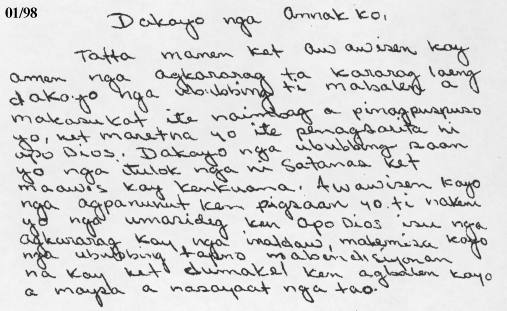 01/98
Dakayo nga annak ko,
Tatta manen ket aw awisen kay
amen nga agkararag ta kararag laeng
dakayo nga ububbing ti mabalen a
makasukat ite naimbag a pinagpuspuso
yo, ket maretna yo ite penagsaita ni
apo Dios. Dakayo nga ububbing saan
yo nga itulok nga ni Satanas ket
maawis kay kenkuana. Awawisen kayo
nga agpanunut ken pigsaan yo ti nakem
yo nga umasideg ken Apo Dios isu nga
agkararag kay nga inaldaw, makemisa kayo
nga ububbing tapno mabendisiyonan
na kay ket dumakel ken agbalen kayo
a maysa a nasayaat nga tao.